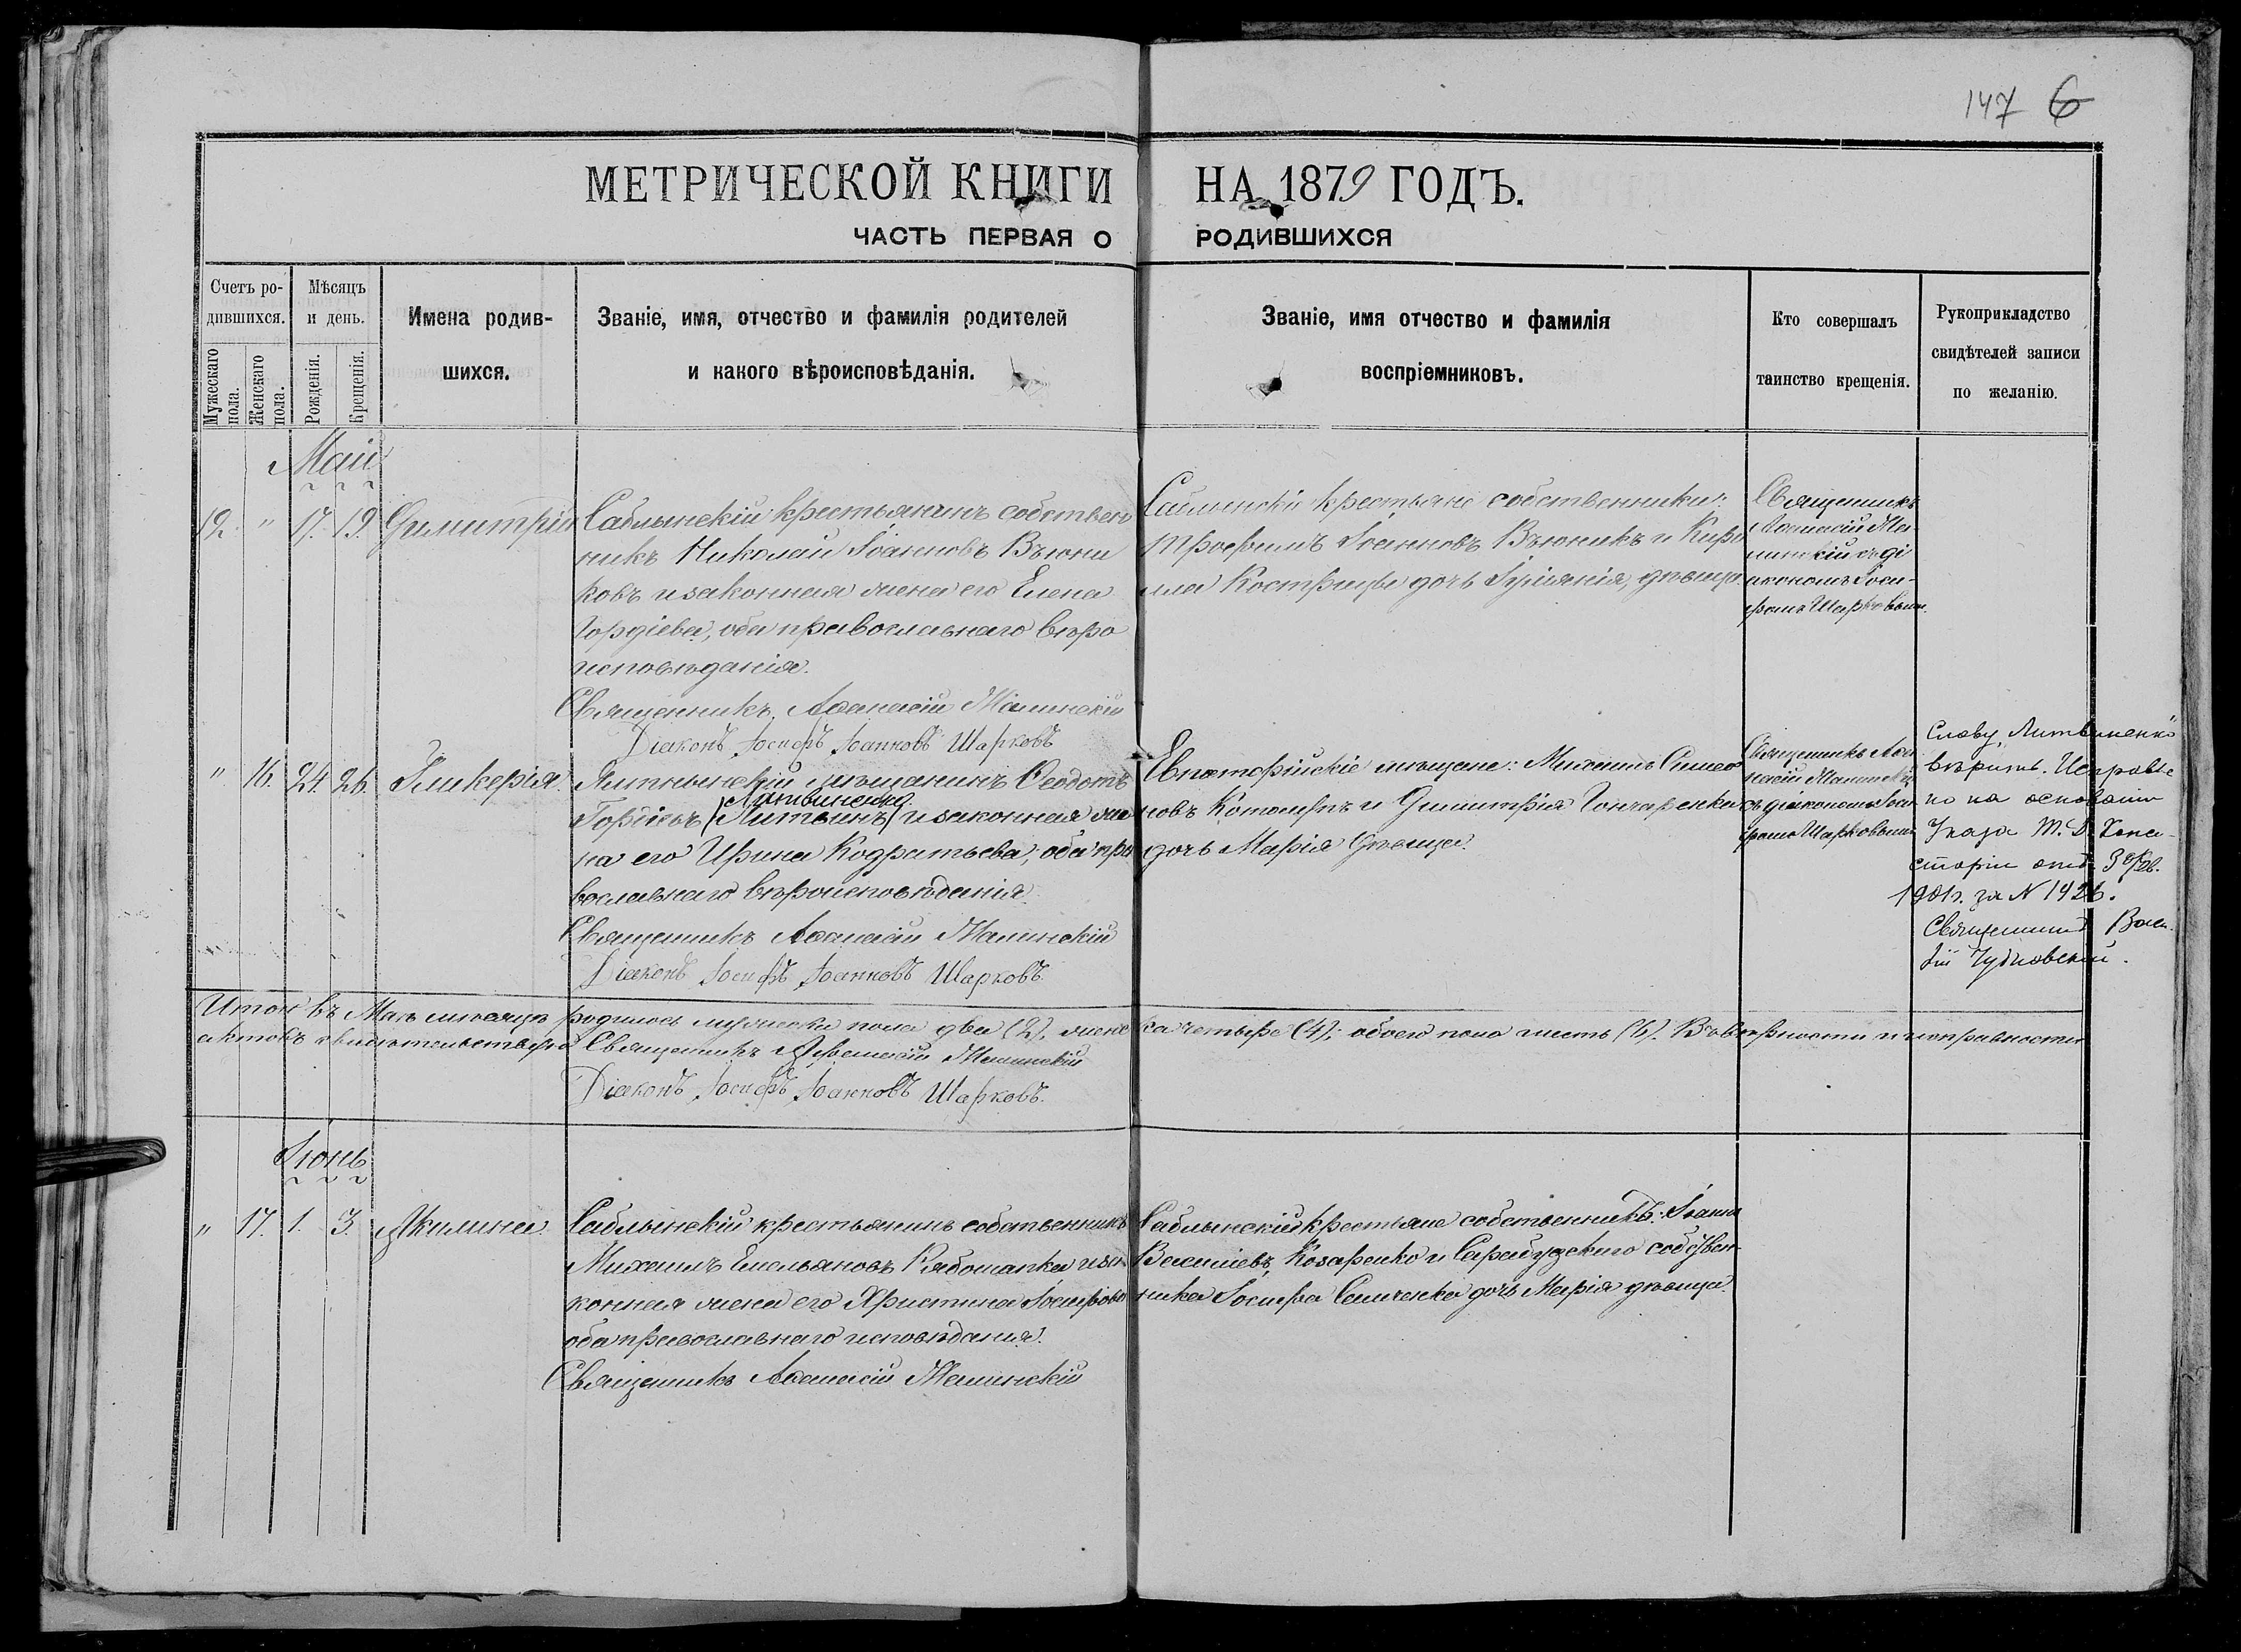 147 6
МЕТРИЧЕСКОЙ КНИГИ НА 1879 ГОДЪ.
ЧАСТЬ ПЕРВАЯ О РОДИВШИХСЯ
Счетъ ро-
дившихся.
Мужескаго
пола.
Женскаго
пола.
Мѣсяцъ
и день.
Рожденія.
Крещенія.
Имена родив-
шихся.
Званіе, имя, отчество и фамилія родителей
и какого вѣроисповѣданія.
Званіе, имя отчество и фамилія
воспріемниковъ.
Кто совершалъ
таинство крещенія.
Рукоприкладство
свидѣтелей записи
по желанію.
Маій
12. " 17. 19. Димитрій
Саблынскій крестьянинъ собствен
никъ Николай Іоанновъ Вьюни
ковъ и законная жена его Елена
Гордіева, оба православнаго вѣро
исповѣданія.
Священникъ Аѳанасій Малинскій
Діаконъ Іосифъ Іоанновъ Шарковъ
Саблынскіе крестьяне собственники:
Трофимъ Іоанновъ Вьюникъ и Кири
лла Кострицы дочь Іуліанія, дѣвица
Священникъ
Аѳанасій Ма-
линскій съ ді
акономъ Іоси-
фомъ Шарковымъ.
" 16. 24. 26. Гликерія.
мѣщанинъ Ѳеодотъ
Литвиненко
Гордіевъ (Литвинъ) и законная же
на его Ирина Кодратьева, оба пра
вославнаго вѣроисповѣданія.
Священникъ Аѳанасій Малинскій
Діаконъ Іосифъ Іоанновъ Шарковъ
Евпаторійскіе мѣщане: Михаилъ Симео
новъ и Димитрія Гончаренка
дочь Марія дѣвица.
Священникъ Аѳа
насій Малинскій
съ діакономъ Іоси
фомъ Шарковымъ
Слову „Литвиненко"
вѣрить. Исправле
но на основаніи
Указа Т. Д. Конси-
сторіи отъ 3 Фев.
1901г. за N 1426.
Священникъ Васи-
лій Чудновскій.
Итого въ Маѣ мѣсяцѣ родилось мужеска пола два (2), женс ка четыре (4); обоего пола шесть (6). Въ вѣрности и исправности
актовъ свидѣтельствуютъ Священникъ Аѳанасій Малинскій
Діаконъ Іосифъ Іоанновъ Шарковъ.
Іюнь
" 17. 1. 3. Акилина.
Саблынскій крестьянинъ собственникъ
Михаилъ Емельяновъ Рябошапка и за
конная жена его Христина Іосифова
оба православнаго исповѣданія.
Священникъ Аѳанасій Малинскій
Саблынскій крестьяне собственникъ: Іоаннъ
Василіевъ Козаренко и Сарабузскаго собствен-
ника Іосифа Самченка дочь Марія дѣвица.